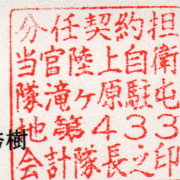 分任契約担
当官陸上自衛
隊滝ヶ原駐屯
地第４３３
会計隊長之印
秀樹